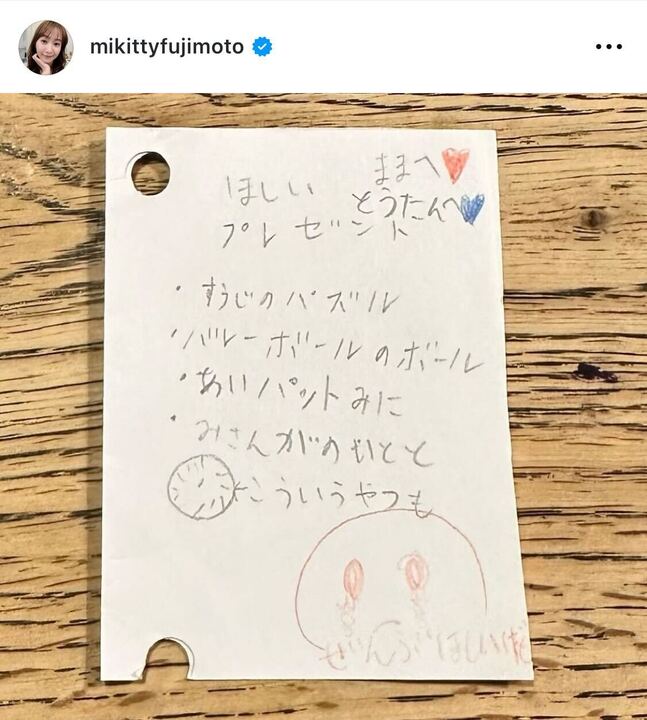 mikittyfujimoto
ままへ
ほしい とうたんへ
プレゼント
・すうじのパズル
・バレーボールのボール
・あいパットみに
・みさんがのいとと
←こういうやつも
ぜんぶほしいけど